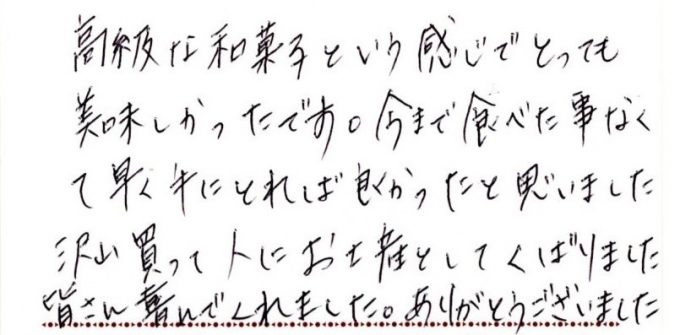 高級な和菓子という感じでとっても
美味しかったです。今まで食べた事なく
て早く手にとれば良かったと思いました
沢山買って人にお土産としてくばりました
皆さん喜んでくれました。ありがとうございました